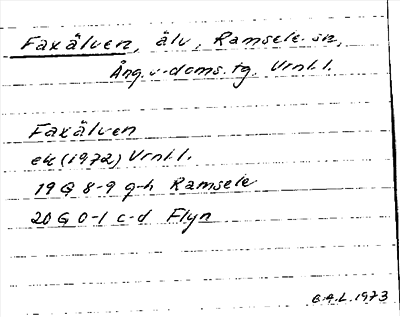 Faxälven, älv, Ramsele sn,
Ång. v. doms. tg. Vrnl. l.
Faxälven
ek (1972) Vrnl. l.
19 G 8-9 g-h Ramsele
20 G 0-1 c-d Flyn
B.A.L. 1973